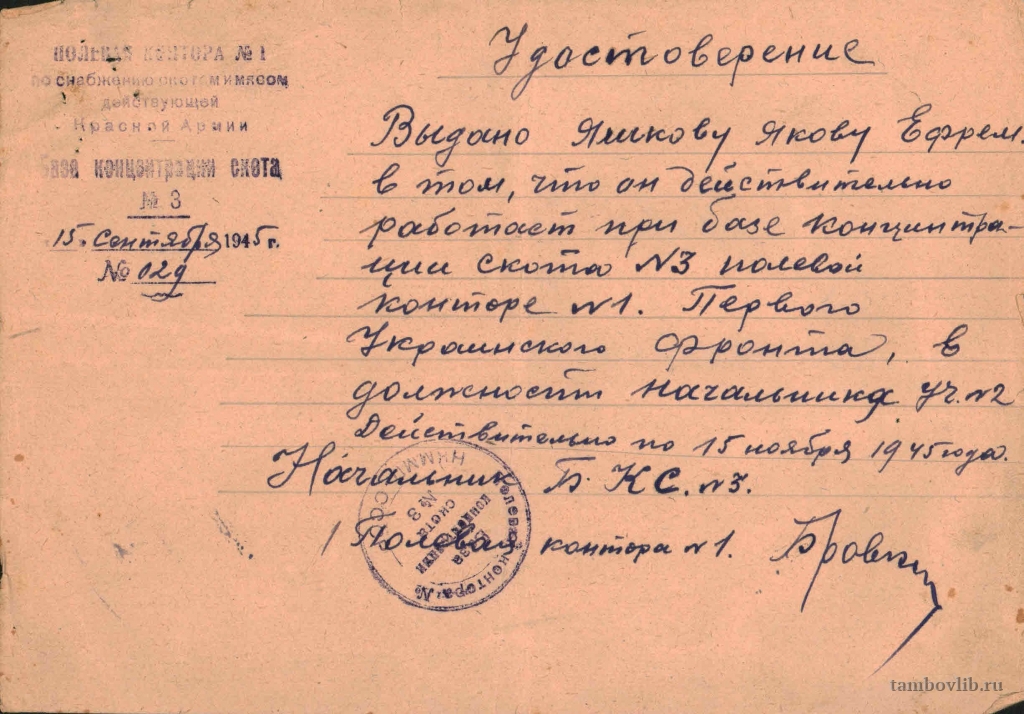 ПОЛЕВАЯ КОНТОРА №1
по снабжению скотом и мясом
действующей
Красной Армии
База концентрации скота
№ 3
15 Сентября 1945 г.
№ 029
Удостоверение
Выдано Яшкову Якову Ефрем.
в том, что он действительно
работает при базе концентра-
ции скота №3 полевой
конторе №1. Первого
Украинского фронта, в
должности начальника уч. №2
Действительно по 15 ноября 1945 года.
Начальник Б.К.С. №3.
Полевая контора №1.
Полевая контора №
НКММП СССР
База
концентрации
скота
№ 3
tambovlib.ru